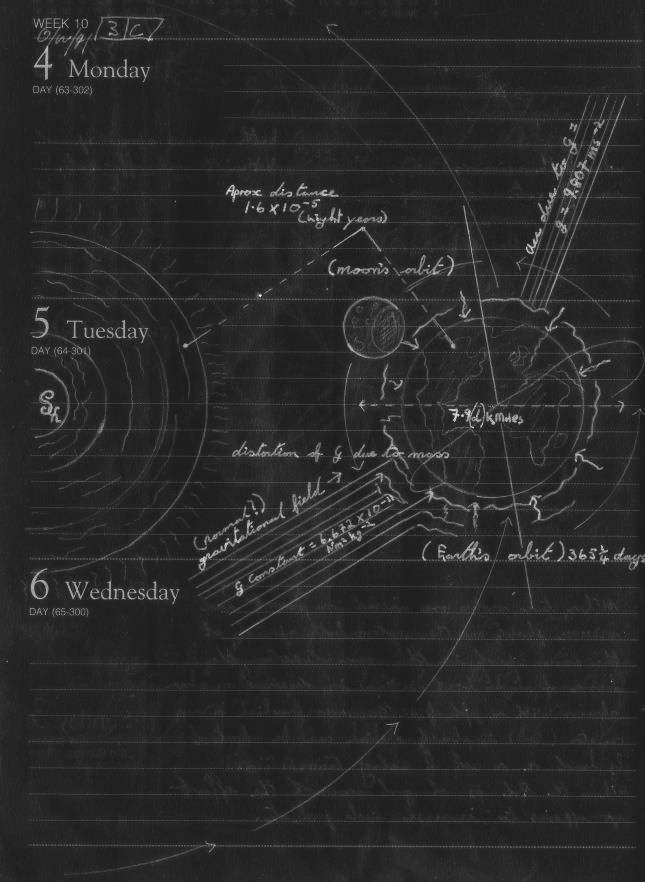 WEEK 10
3/C
4 Monday
DAY (63-302)
Aprox distance
1.6 x 10⁻⁵
(light years)
acc due to g =
g = 9.807 ms⁻²
(moon's orbit)
5 Tuesday
DAY (64-301)
distortion of g due to mass
(normal?)
gravitational field
g constant = 6.672 x 10⁻¹¹
Nm² kg⁻²
(Earth's orbit) 365¼ days
6 Wednesday
DAY (65-300)